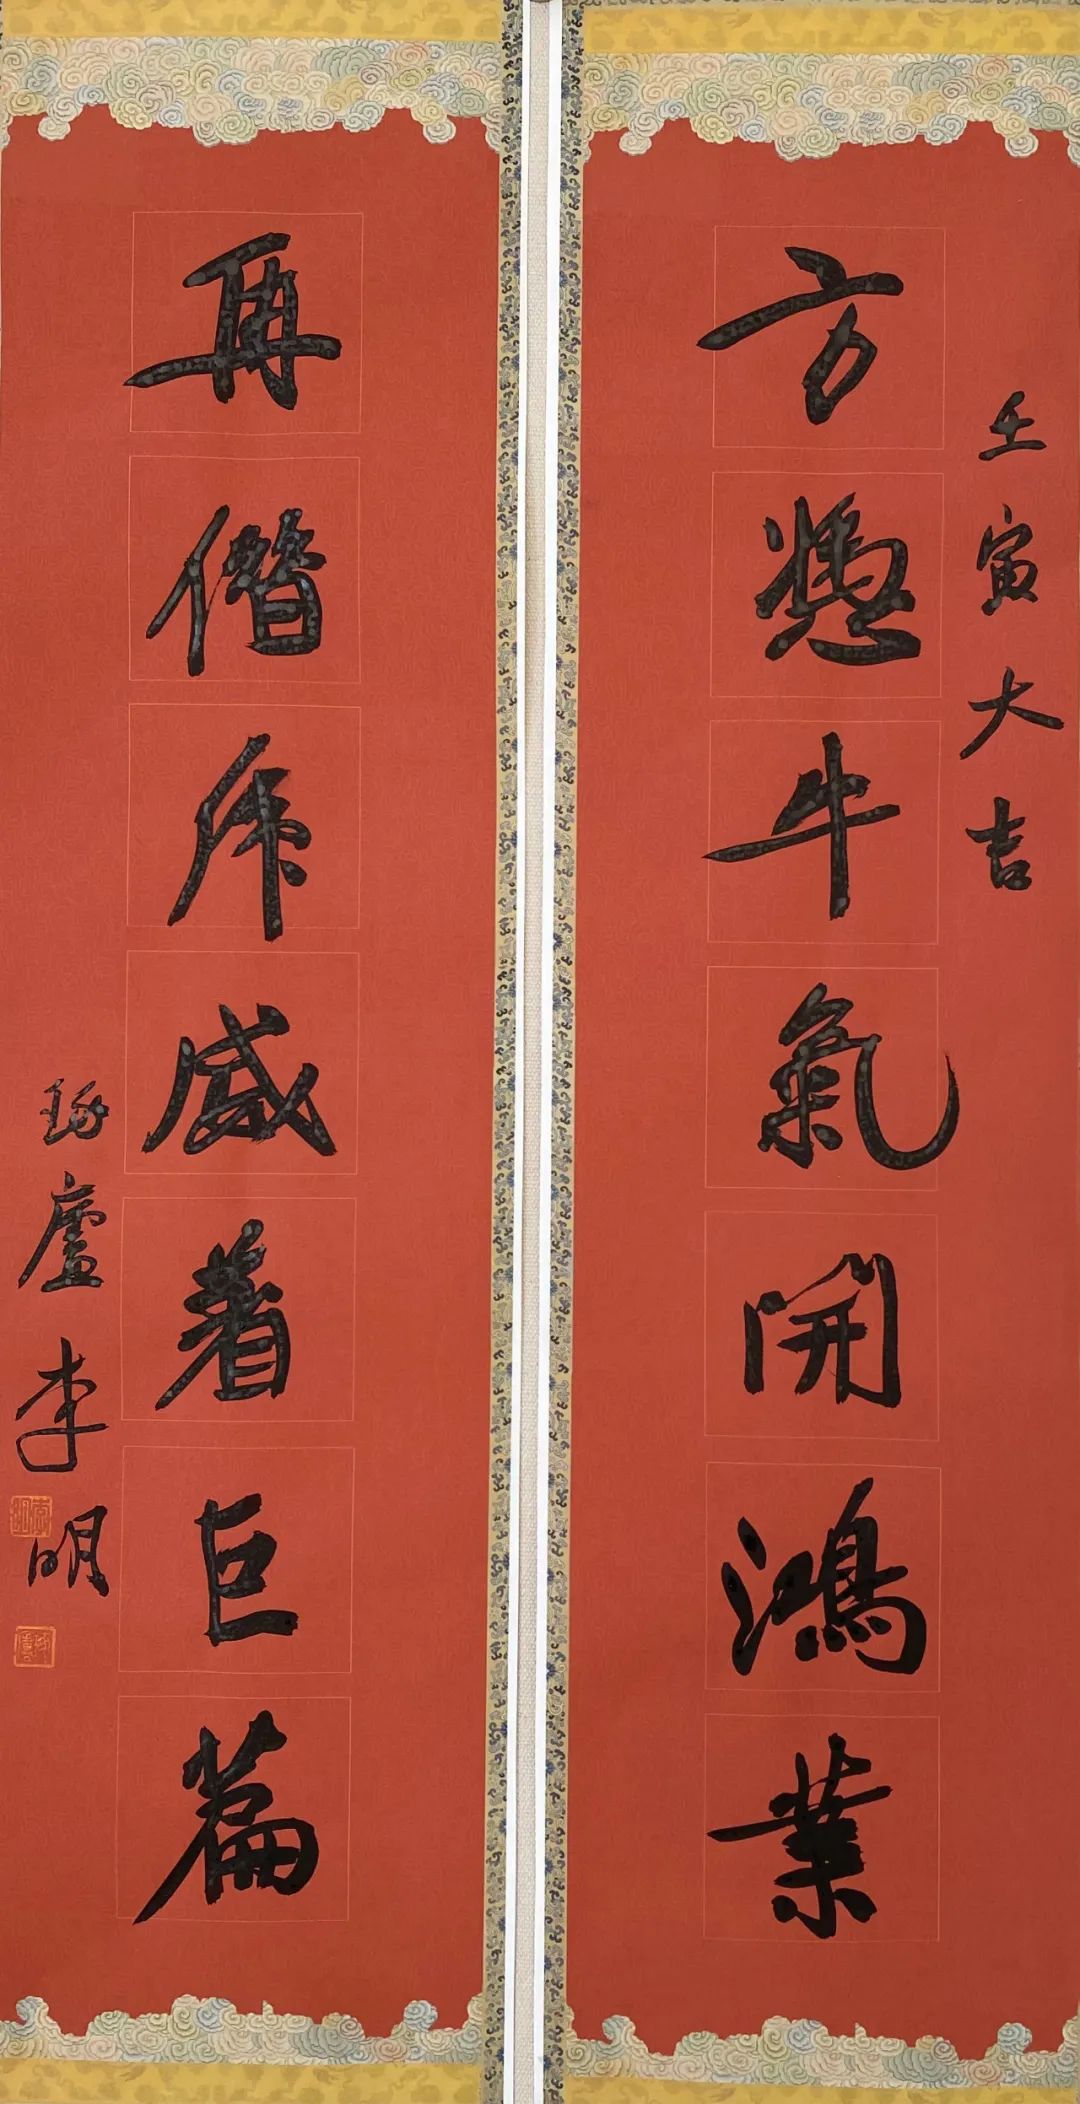 壬寅大吉
方憑牛氣開鴻業
再僭虎威着巨篇
琢廬李明